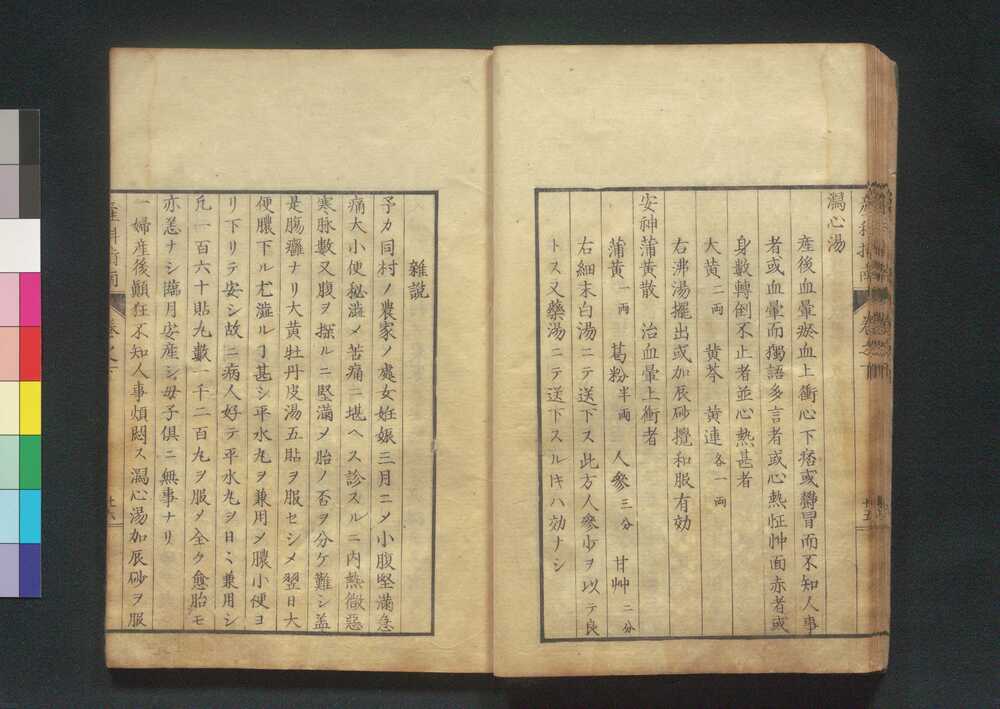 瀉心湯
産後血暈瘀血上衝心下痞或鬱冒而不知人事
者或血暈而獨語多言者或心熱怔忡面赤者或
身數轉倒不止者並心熱甚者
大黄二両 黄芩 黄連各一両
右沸湯擺出或加辰砂攪和服有効
安神蒲黄散 治血暈上衝者
蒲黄一両 葛粉半両 人參三分 甘艸二分
右細末白湯ニテ送下ス此方人參少ヲ以テ良
トス又藥湯ニテ送下スルキハ効ナシ
雜說
予カ同村ノ農家ノ處女妊娠三月ニメ小腹堅滿急
痛大小便秘澁メ苦痛ニ堪ヘス診スルニ内熱微惡
寒脉數又腹ヲ探ルニ堅滿メ胎ノ否ヲ分ケ難シ盖
是腸癰ナリ大黄牡丹皮湯五貼ヲ服セシメ翌日大
便膿下ル尤澁ルヿ甚シ平水丸ヲ兼用メ膿小便ヨ
リ下リテ安シ故ニ病人好テ平水丸ヲ日ニ兼用シ
凢一百六十貼丸數一千二百丸ヲ服メ全ク愈胎モ
亦恙ナシ臨月安産シ毋子俱ニ無事ナリ
一婦産後顚狂不知人事煩悶ス瀉心湯加辰砂ヲ服
産科指南 卷之